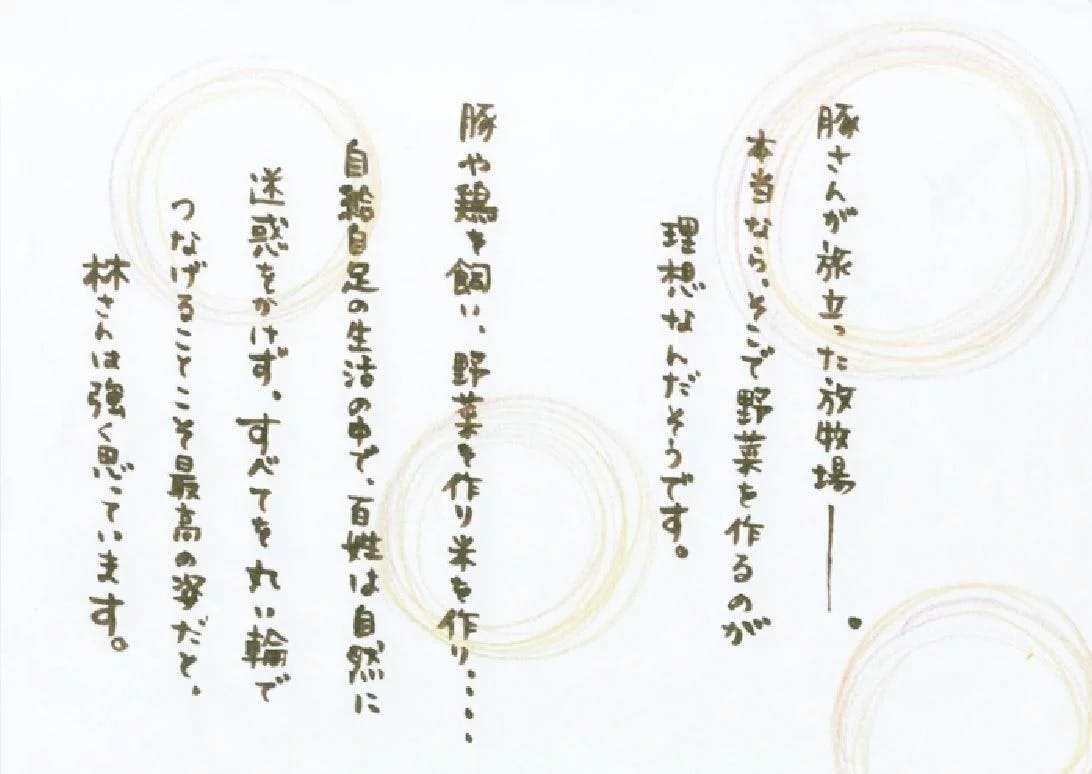 豚さんが旅立った放牧場――。
本当なら、そこで野菜を作るのが
理想なんだそうです。
豚や鶏を飼い、野菜を作り米を作り、、、、
自給自足の生活の中で、百姓は自然に
迷惑をかけず、すべてを丸い輪で
つなげることこそ最高の姿だと、
林さんは強く思っています。